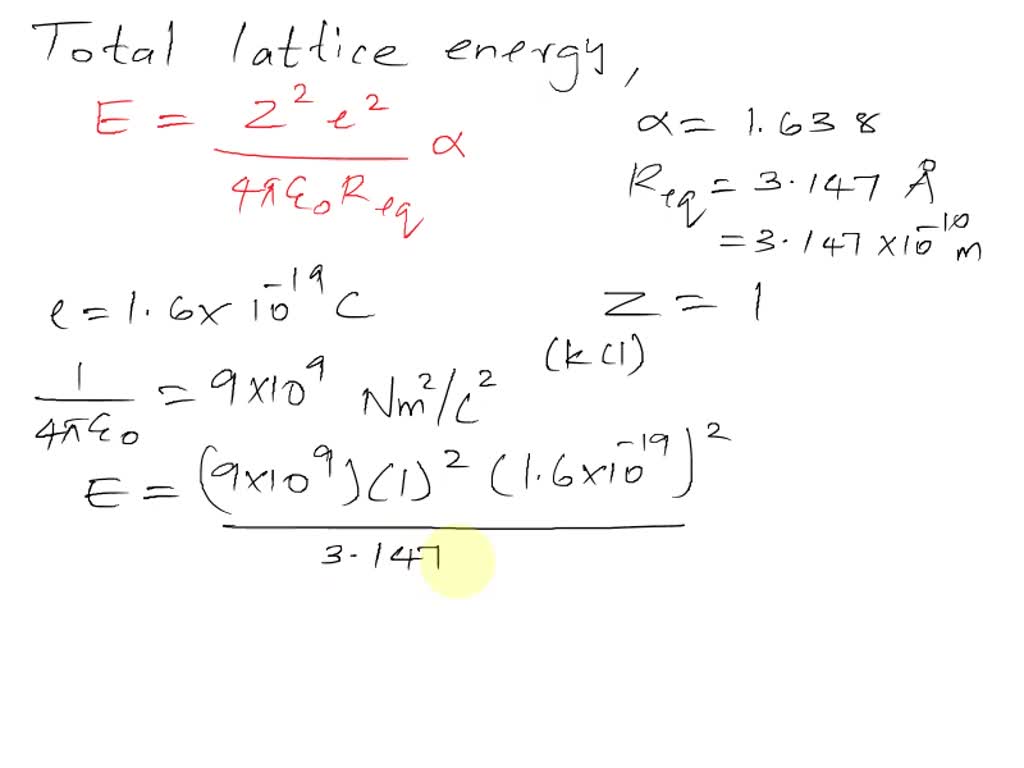 Total lattice energy,
E = Z² e² / 4πε₀ R_eq α
α = 1.638
R_eq = 3.147 Å
= 3.147 × 10⁻¹⁰ m
e = 1.6 × 10⁻¹⁹ C
Z = 1
(kCl)
1 / 4πε₀ = 9×10⁹ Nm²/C²
E = (9×10⁹)(1)² (1.6×10⁻¹⁹)²
3.147